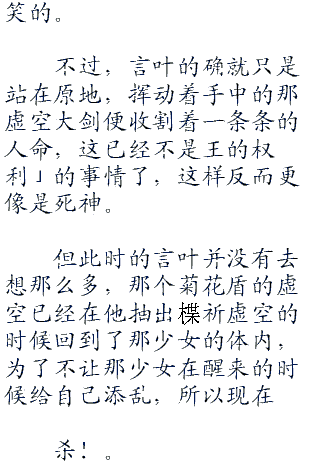 笑的。
不过，言叶的确就只是
站在原地，挥动着手中的那
虚空大剑便收割着一条条的
人命，这已经不是王的权
利」的事情了，这样反而更
像是死神。
但此时的言叶并没有去
想那么多，那个菊花盾的虚
空已经在他抽出楪祈虚空的
时候回到了那少女的体内，
为了不让那少女在醒来的时
候给自己添乱，所以现在
杀！。